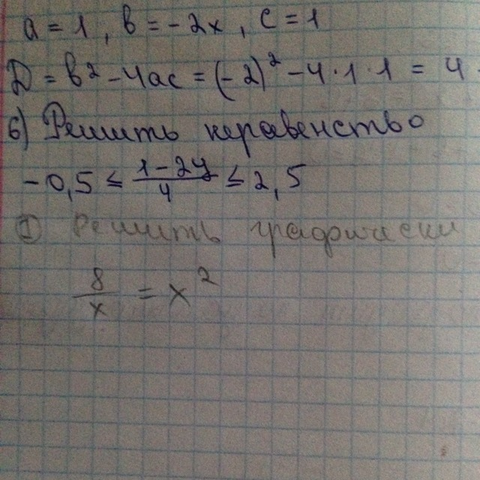 a = 1, b = -2x, c = 1
D = b² - 4ac = (-2)² - 4·1·1 = 4
6) Решить неравенство
-0,5 ≤ (1-2y)/4 ≤ 2,5
Решить графически
8/x = x²